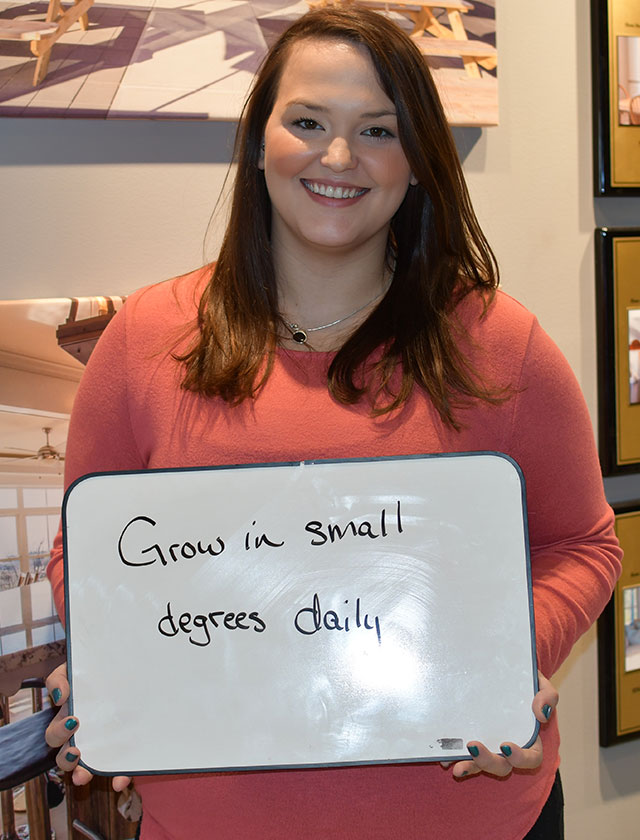 Grow in small
degrees daily